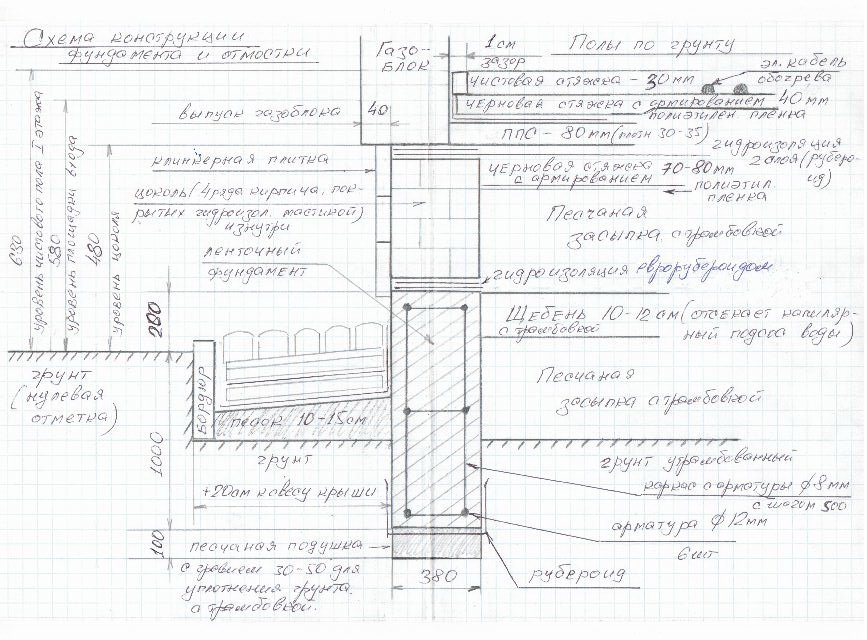 Схема конструкции
фундамента и отмостки
Газо-
блок
1см
зазор
Полы по грунту
эл. кабель
обогрева
чистовая стяжка - 30мм
черновая стяжка с армированием 40 мм
полиэтилен. пленка
ППС - 80мм (плотн 30-35)
гидроизоляция
2 слоя (руберо-
ид)
выпуск газоблока
40
клинкерная плитка
цоколь (4 ряда кирпича, пок-
рытых гидроизол. мастикой)
изнутри
черновая стяжка 70-80мм
с армированием
полиэтил.
пленка
Песчаная
засыпка с трамбовкой
ленточный
фундамент
гидроизоляция еврорубероидом
Щебень 10-12 см (отсекает капиляр-
с трамбовкой
ный подсос воды)
уровень чистового пола I этажа
уровень площадки входа
580
уровень цоколя
480
200
грунт
(нулевая
отметка)
Бордюр
песок 10-15см
Песчаная
засыпка с трамбовкой
грунт
грунт утрамбованный
1000
+20см к свесу крыши
каркас с арматуры ф 8 мм
с шагом 500
арматура ф 12мм
6шт
100
песчаная подушка
с гравием 30-50 для
уплотнения грунта.
с трамбовкой.
380
рубероид